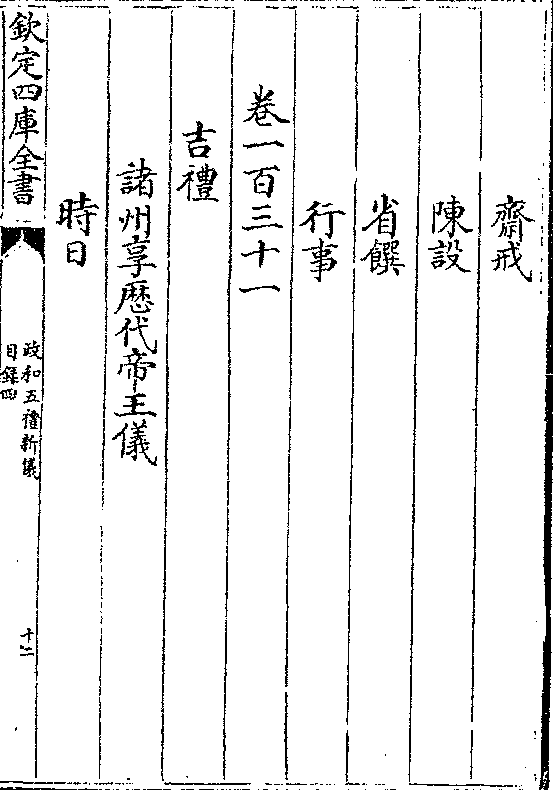 齋戒
陳設
省饌
行事
卷一百三十一
吉禮
諸州享歷代帝王儀
時日
欽定四庫全書
政和五禮新儀
目錄四
十二